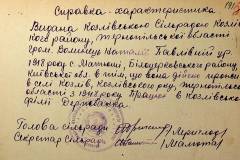 Справка-характеристика
Видана Козлівською Сільрадою Козлів
ского району, Тернопільської області
гром. Волинець Наталії Павлівній ур.
1918 року с. Матюші, Білоцерківського району,
Київської обл. в тім, що вона дійсно прожи
в селі Козлів, Козлівського р-ну, Тернопільсь
області з 1948 року. Працює в Козлівсько
філії Держбанка.
Голова сільради
Секретар Сільради